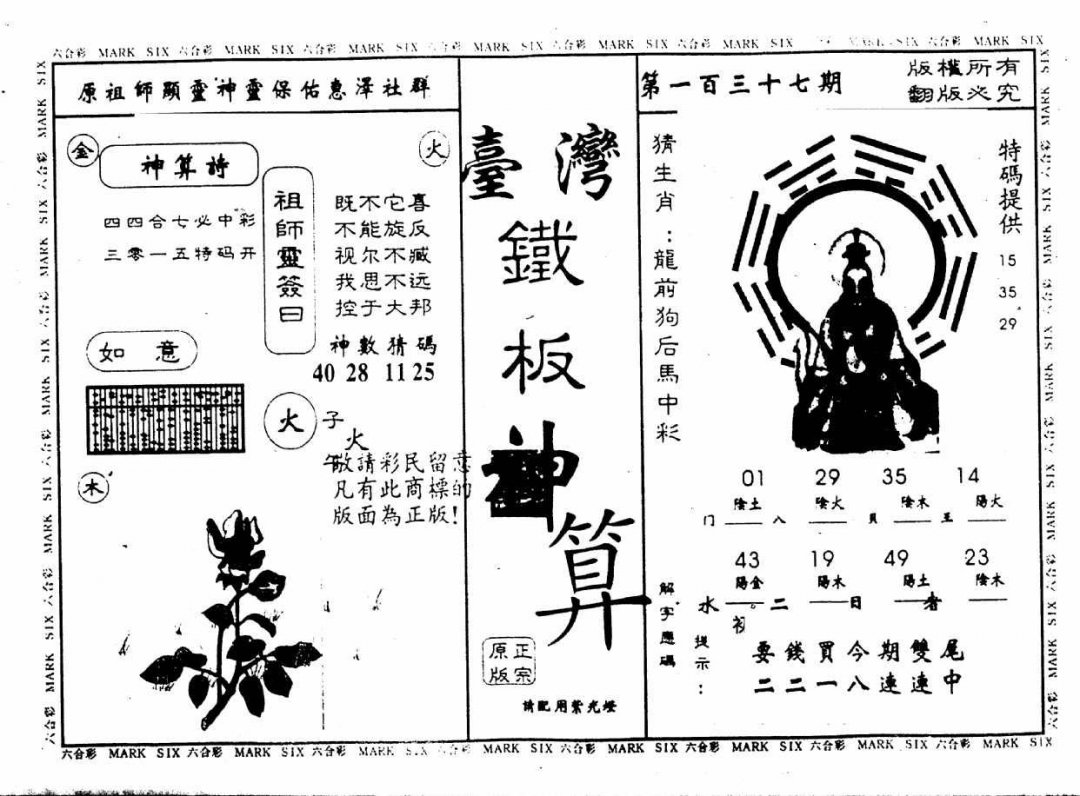 六合彩 MARK SIX 六合彩 MARK SIX 六合彩 MARK SIX 六合彩 MARK SIX 六合彩 MARK SIX 六合彩 MARK SIX 六合彩 MARK SIX 六合彩 MARK SIX
原祖師顯靈神靈保佑惠澤社群
金
神算詩
火
四四合七必中彩
三零一五特码开
祖師靈簽曰
既不它喜
不能旋反
视尔不臧
我思不远
控于大邦
神數猜碼
40 28 11 25
如意
火
子
火
午
敬請彩民留意
凡有此商標的
版面為正版!
木
臺灣
鐵
板
神
算
原正
版宗
請配用紫光燈
第一百三十七期
版權所有
翻版必究
猜生肖:龍前狗后馬中彩
特碼提供
15
35
29
01 29 35 14
陰土 陰火 陰木 陽火
门 八 貝 王
43 19 49 23
陽金 陽木 陽土 陰木
水 二 日 者
初
解字應碼
提示:
要錢買今期雙尾
二二一八連連中
六合彩 MARK SIX 六合彩 MARK SIX 六合彩 MARK SIX 六合彩 MARK SIX 六合彩 MARK SIX 六合彩 MARK SIX 六合彩 MARK SIX 六合彩 MARK SIX